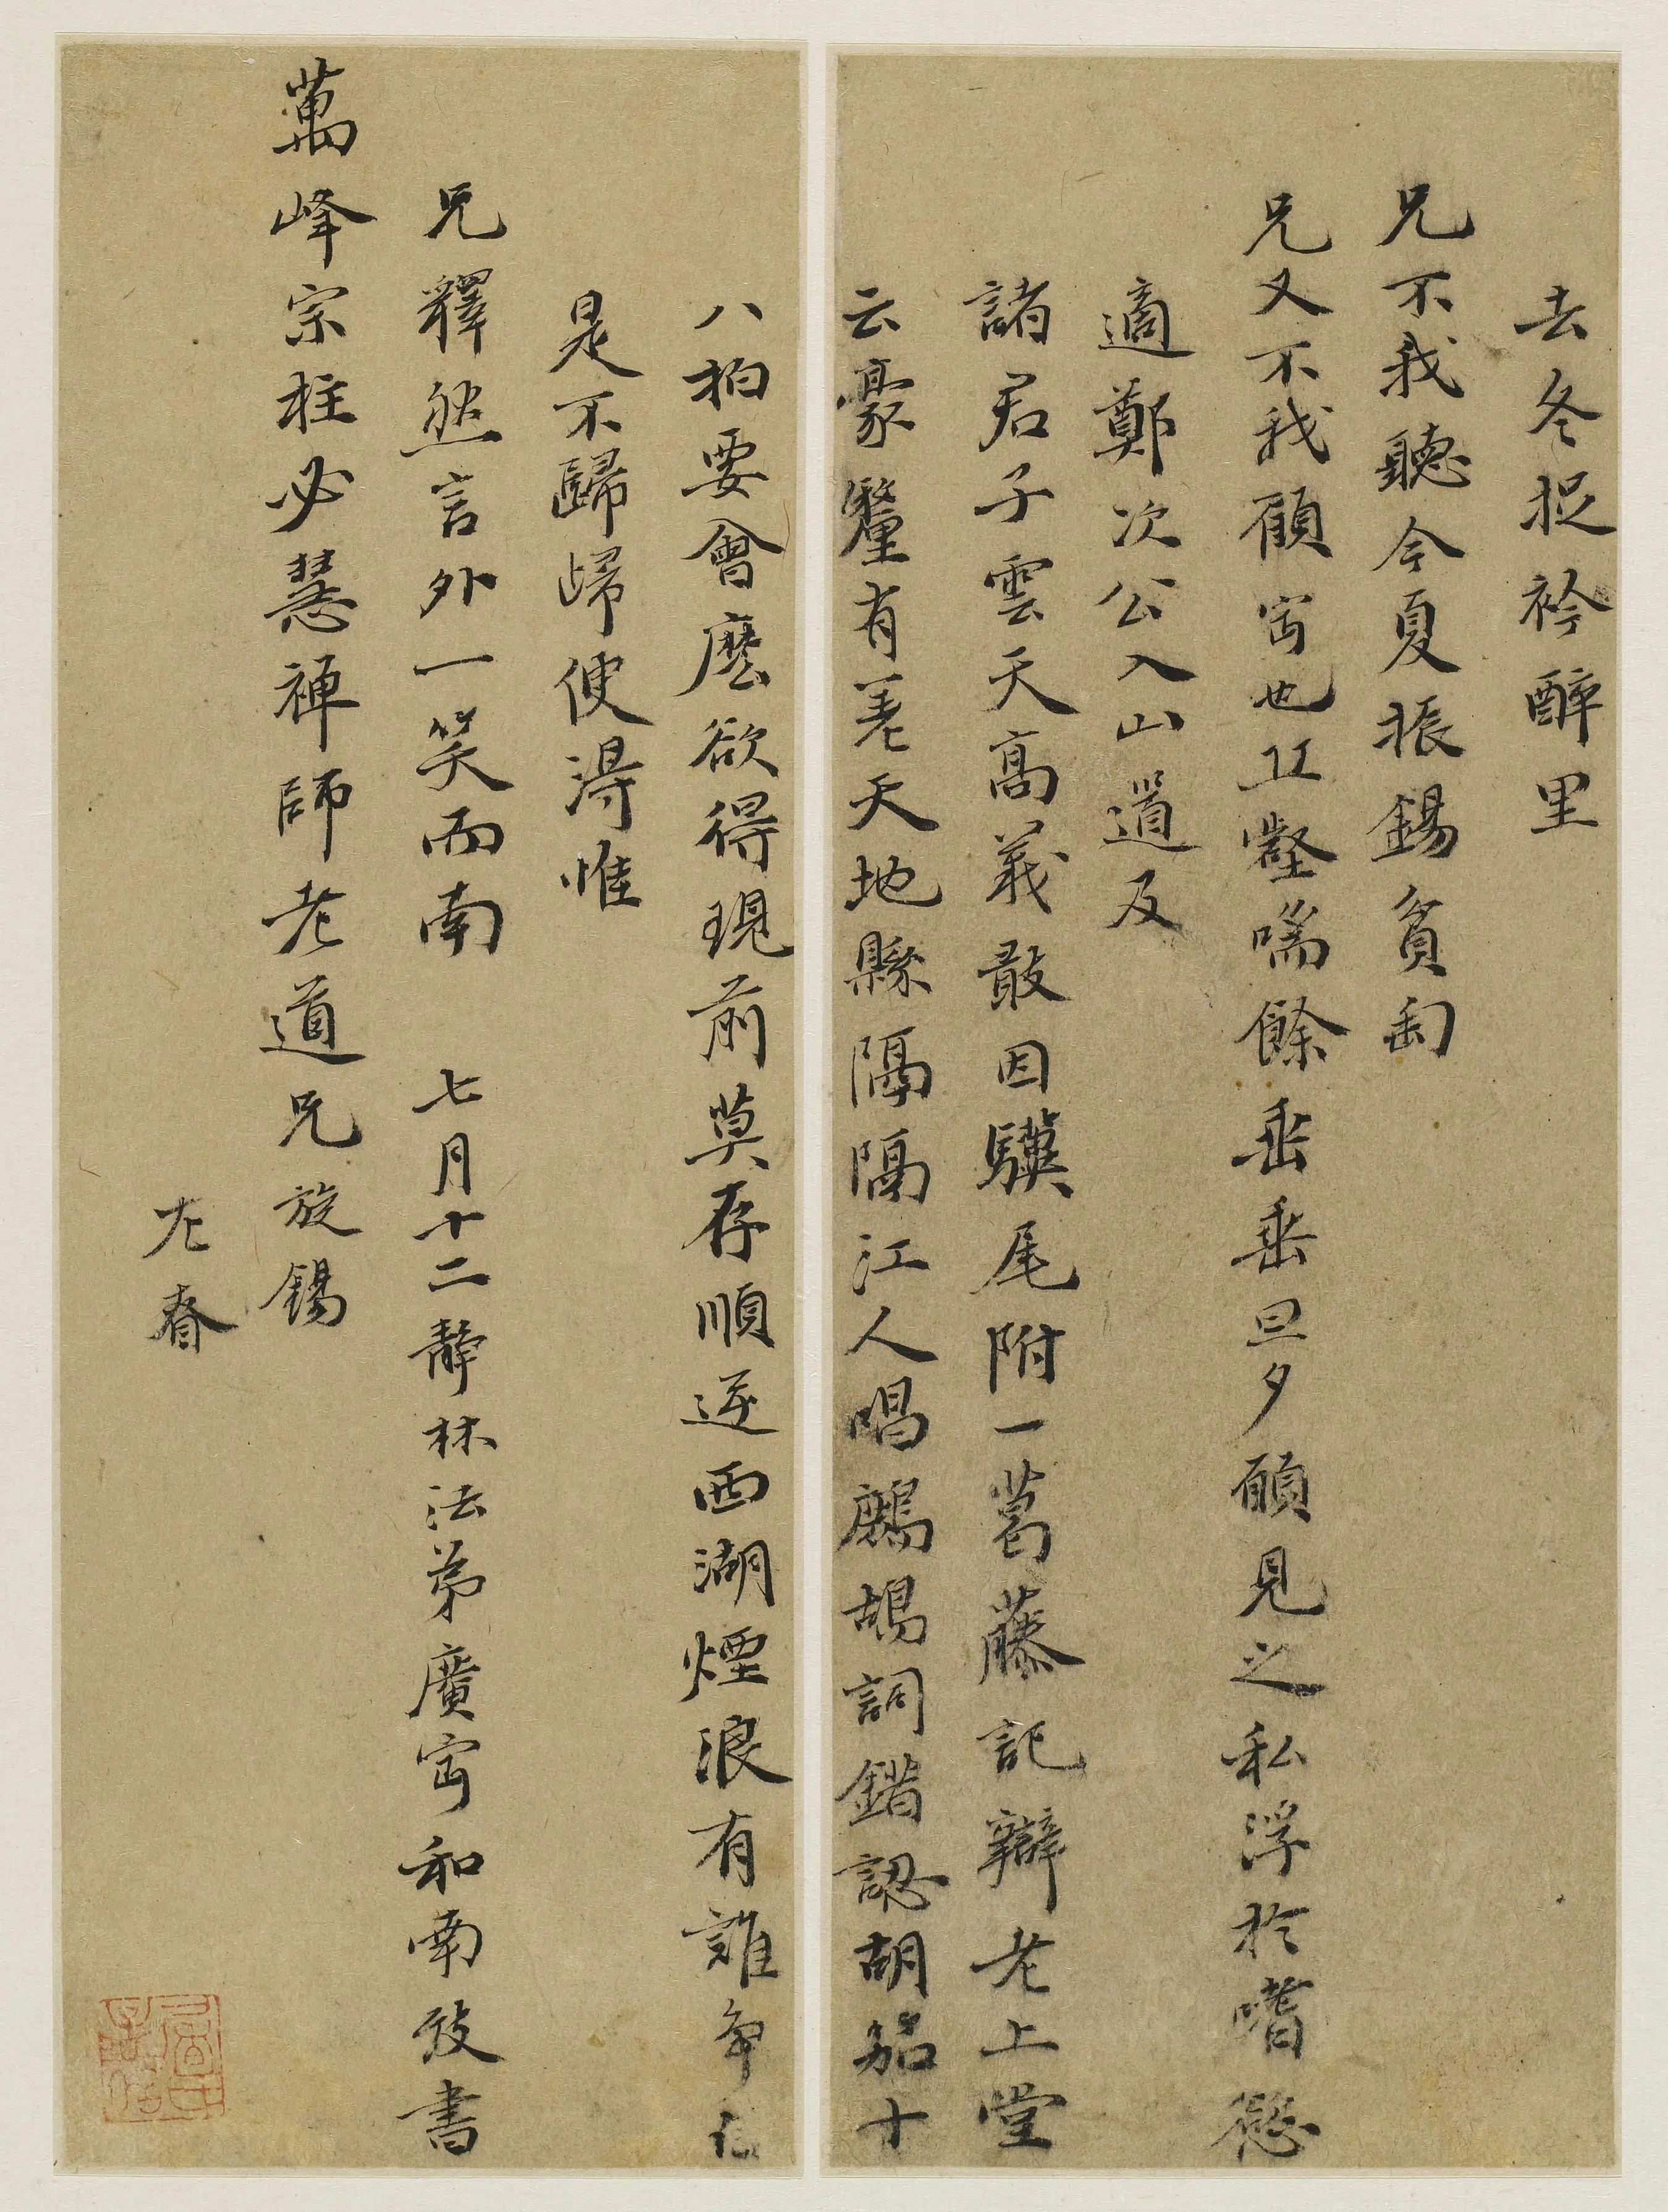 去冬捉衿醉里
兄不我聽今夏振錫貧匋
兄又不我顧寗也丘壑喘餘垂垂旦夕願見之私浮於嗜慾
適鄭次公入山道及
諸君子雲天高義敢因驥尾附一葛藤記辯老上堂
云豪釐有差天地縣隔隔江人唱鷓鴣詞錯認胡笳十
八拍要會麼欲得現前莫存順逆西湖煙浪有誰爭
是不歸歸便得惟
兄釋然言外一笑而南 七月十二靜林法弟廣寗和南致書
萬峰宗柱必慧禪師老道兄旋錫
左春